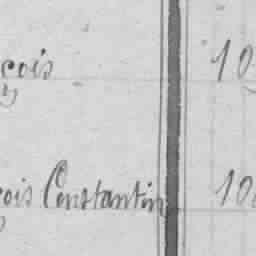 çois 10
çois Constantin 10